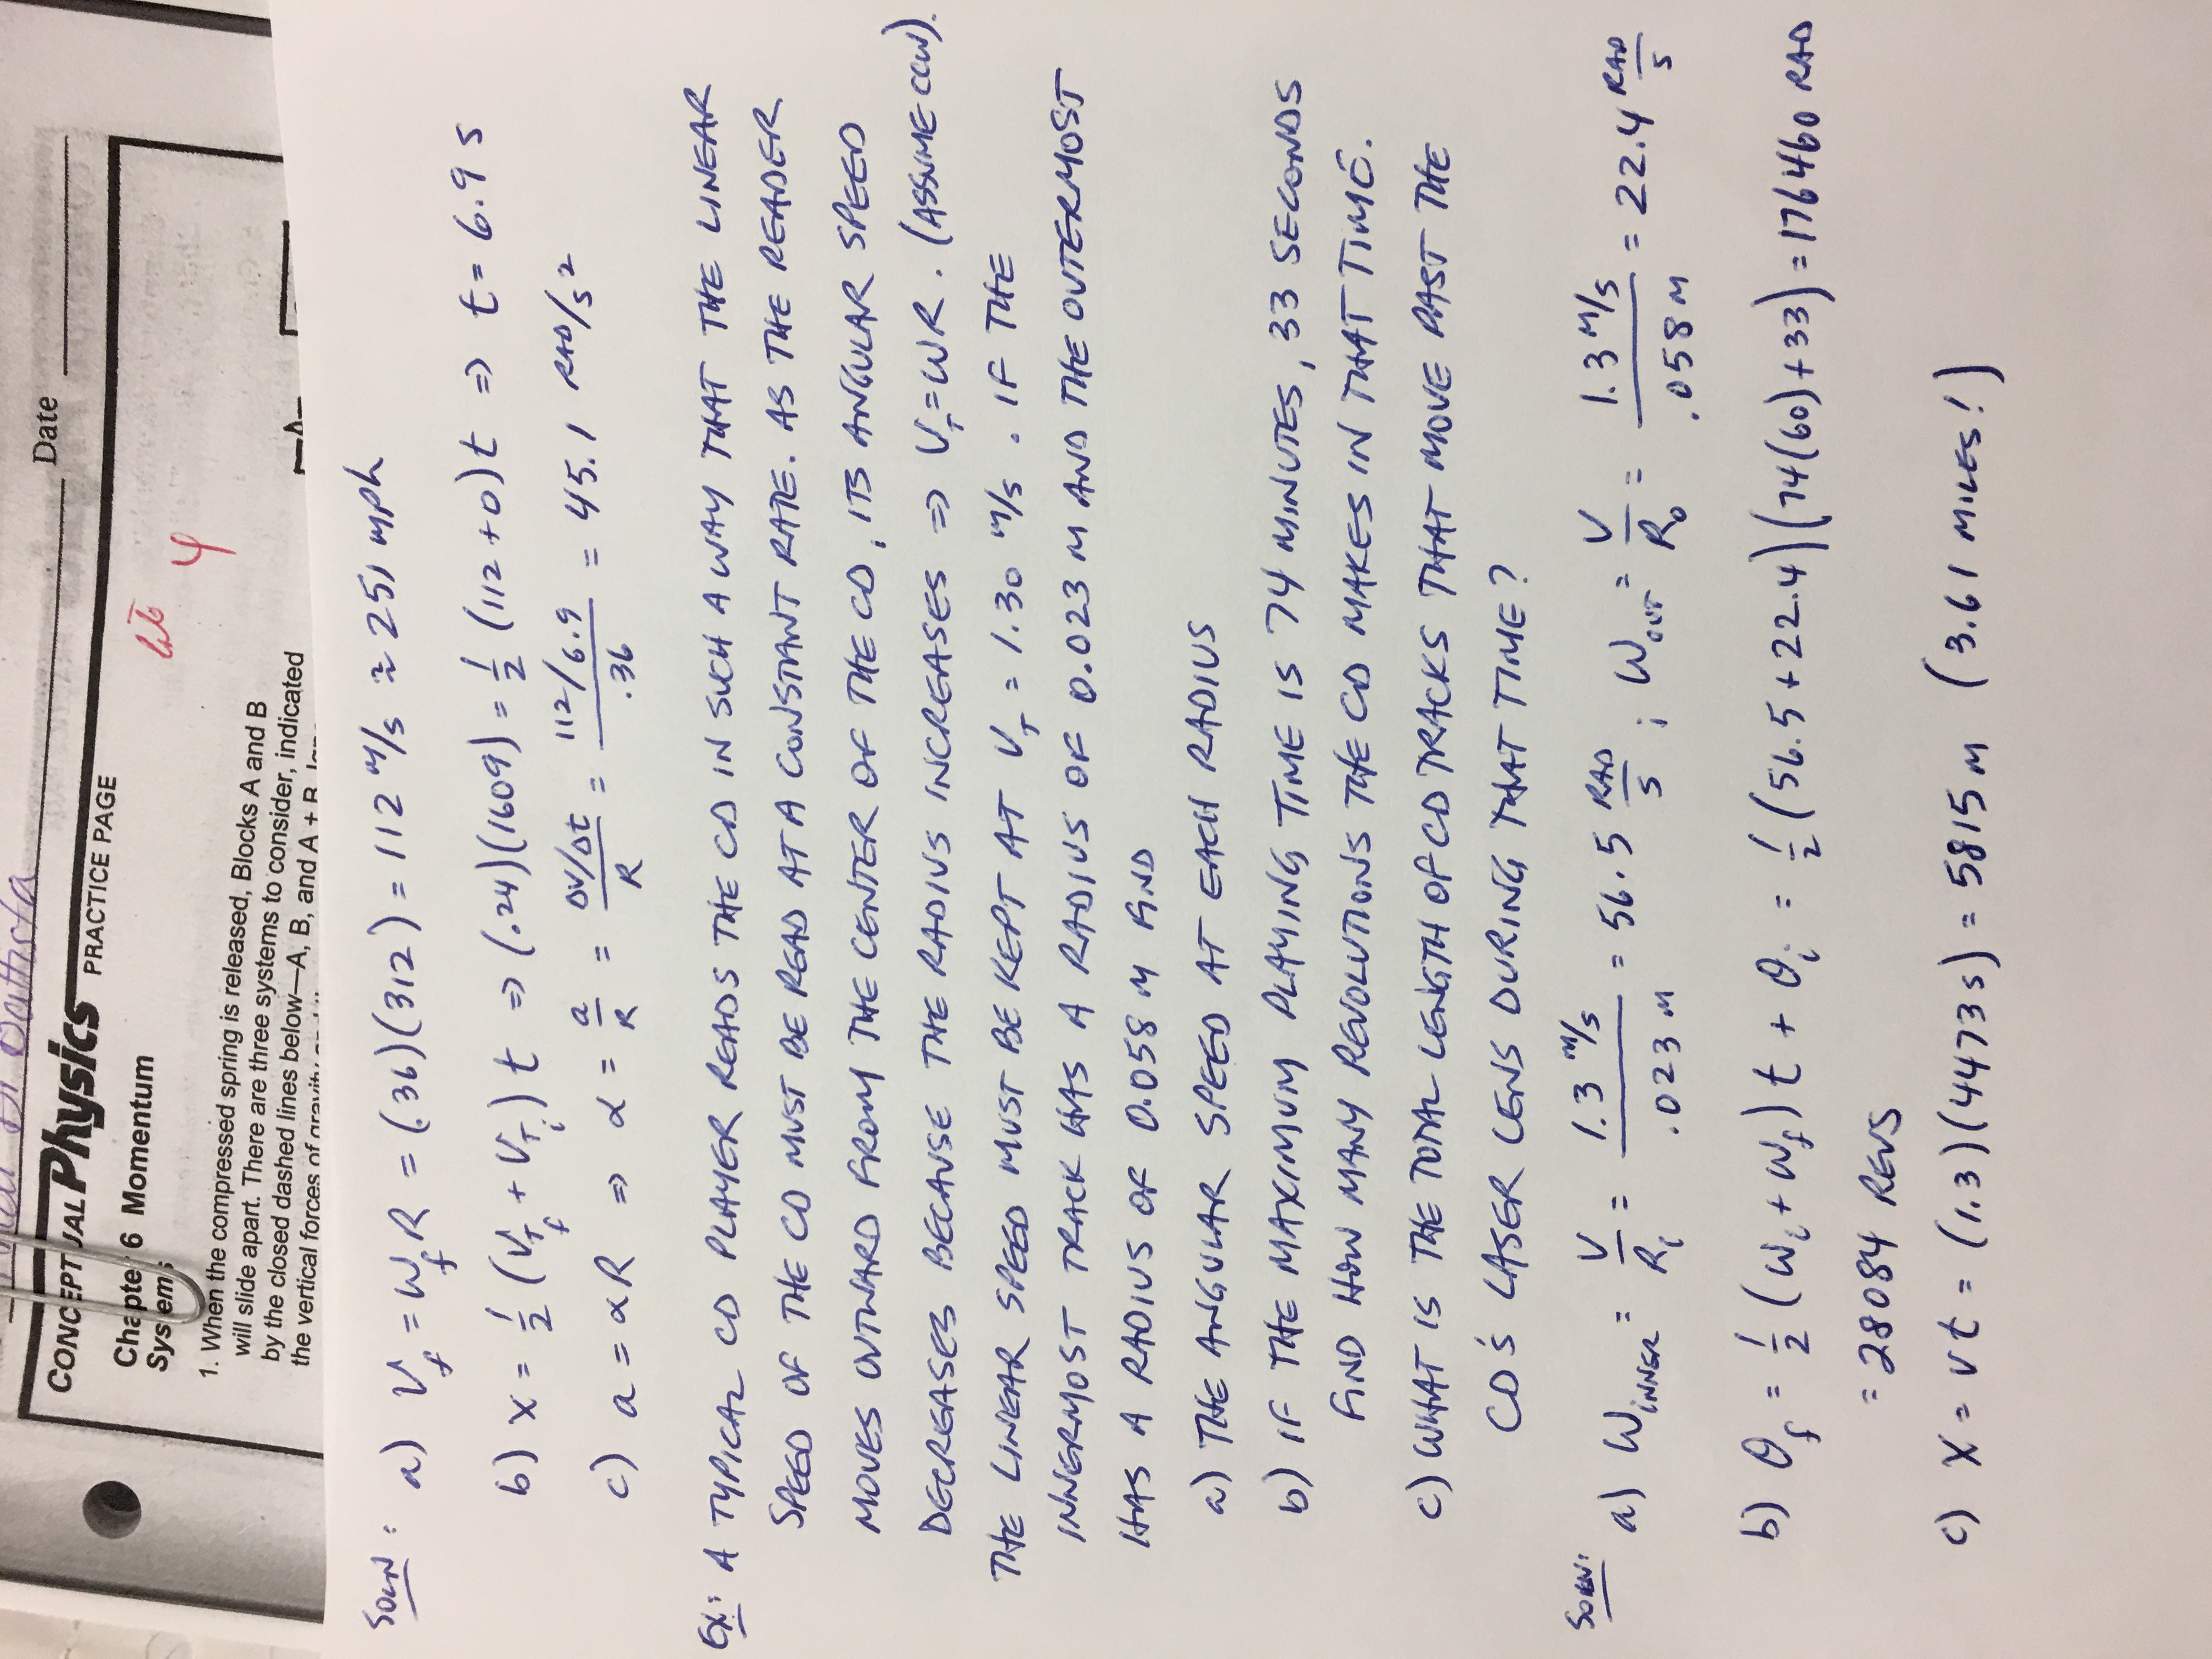 Date
CONCEPTUAL Physics PRACTICE PAGE
Chapter 6 Momentum
Systems
4
1. When the compressed spring is released, Blocks A and B
will slide apart. There are three systems to consider, indicated
by the closed dashed lines below—A, B, and A + B
the vertical forces of gravity
SOLN:
a) V_f = W_f R = (.36)(312) = 112 m/s ≈ 251 mph
b) X = 1/2 (V_Tf + V_Ti) t ⇒ (.24)(1609) = 1/2 (112 + 0) t ⇒ t = 6.9 s
c) a = αR ⇒ α = a/R = (ΔV/Δt)/R = (112/6.9)/.36 = 45.1 RAD/S²
EX: A TYPICAL CD PLAYER READS THE CD IN SUCH A WAY THAT THE LINEAR
SPEED OF THE CD MUST BE READ AT A CONSTANT RATE. AS THE READER
MOVES OUTWARD FROM THE CENTER OF THE CD, ITS ANGULAR SPEED
DECREASES BECAUSE THE RADIUS INCREASES ⇒ V_T = WR. (ASSUME CCW).
THE LINEAR SPEED MUST BE KEPT AT V_T = 1.30 m/s. IF THE
INNERMOST TRACK HAS A RADIUS OF 0.023 M AND THE OUTERMOST
HAS A RADIUS OF 0.058 M FIND
a) THE ANGULAR SPEED AT EACH RADIUS
b) IF THE MAXIMUM PLAYING TIME IS 74 MINUTES, 33 SECONDS
FIND HOW MANY REVOLUTIONS THE CD MAKES IN THAT TIME.
c) WHAT IS THE TOTAL LENGTH OF CD TRACKS THAT MOVE PAST THE
CD'S LASER LENS DURING THAT TIME?
SOLN:
a) W_INNER = V/R_i = 1.3 m/s / .023 m = 56.5 RAD/S ; W_OUT = V/R_o = 1.3 m/s / .058 m = 22.4 RAD/S
b) θ_f = 1/2 (W_i + W_f) t + θ_i = 1/2 (56.5 + 22.4)(74(60) + 33) = 176460 RAD
= 28084 REVS
c) X = vt = (1.3)(4473 s) = 5815 m (3.61 MILES!)